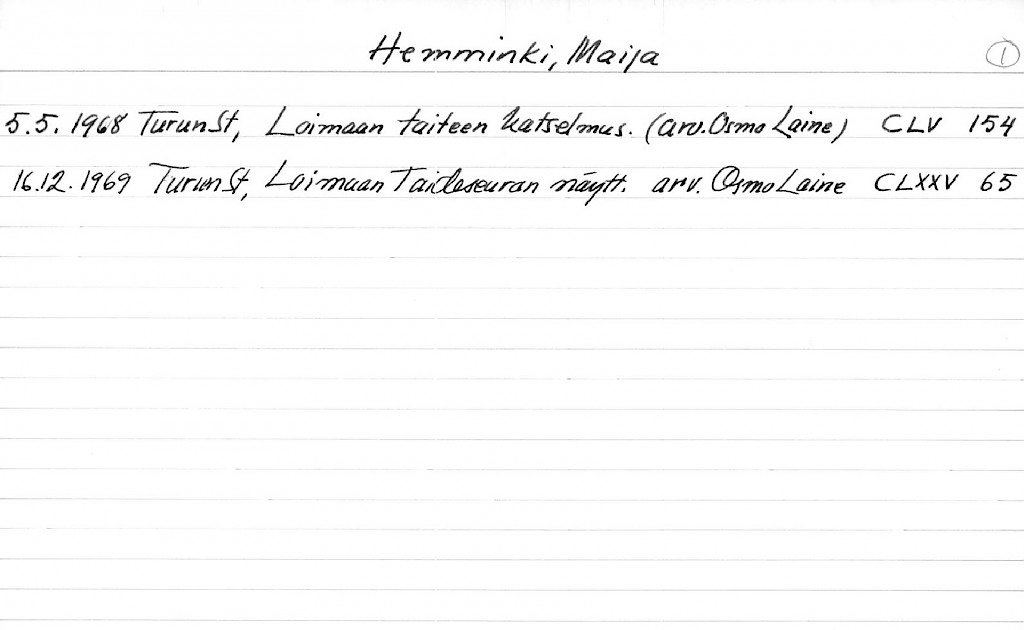 Hemminki, Maija 1
5.5. 1968 Turun St, Loimaan taiteen katselmus. (arv. Osmo Laine) CLV 154
16.12. 1969 Turun St, Loimaan Taideseuran näytt. arv. Osmo Laine CLXXV 65